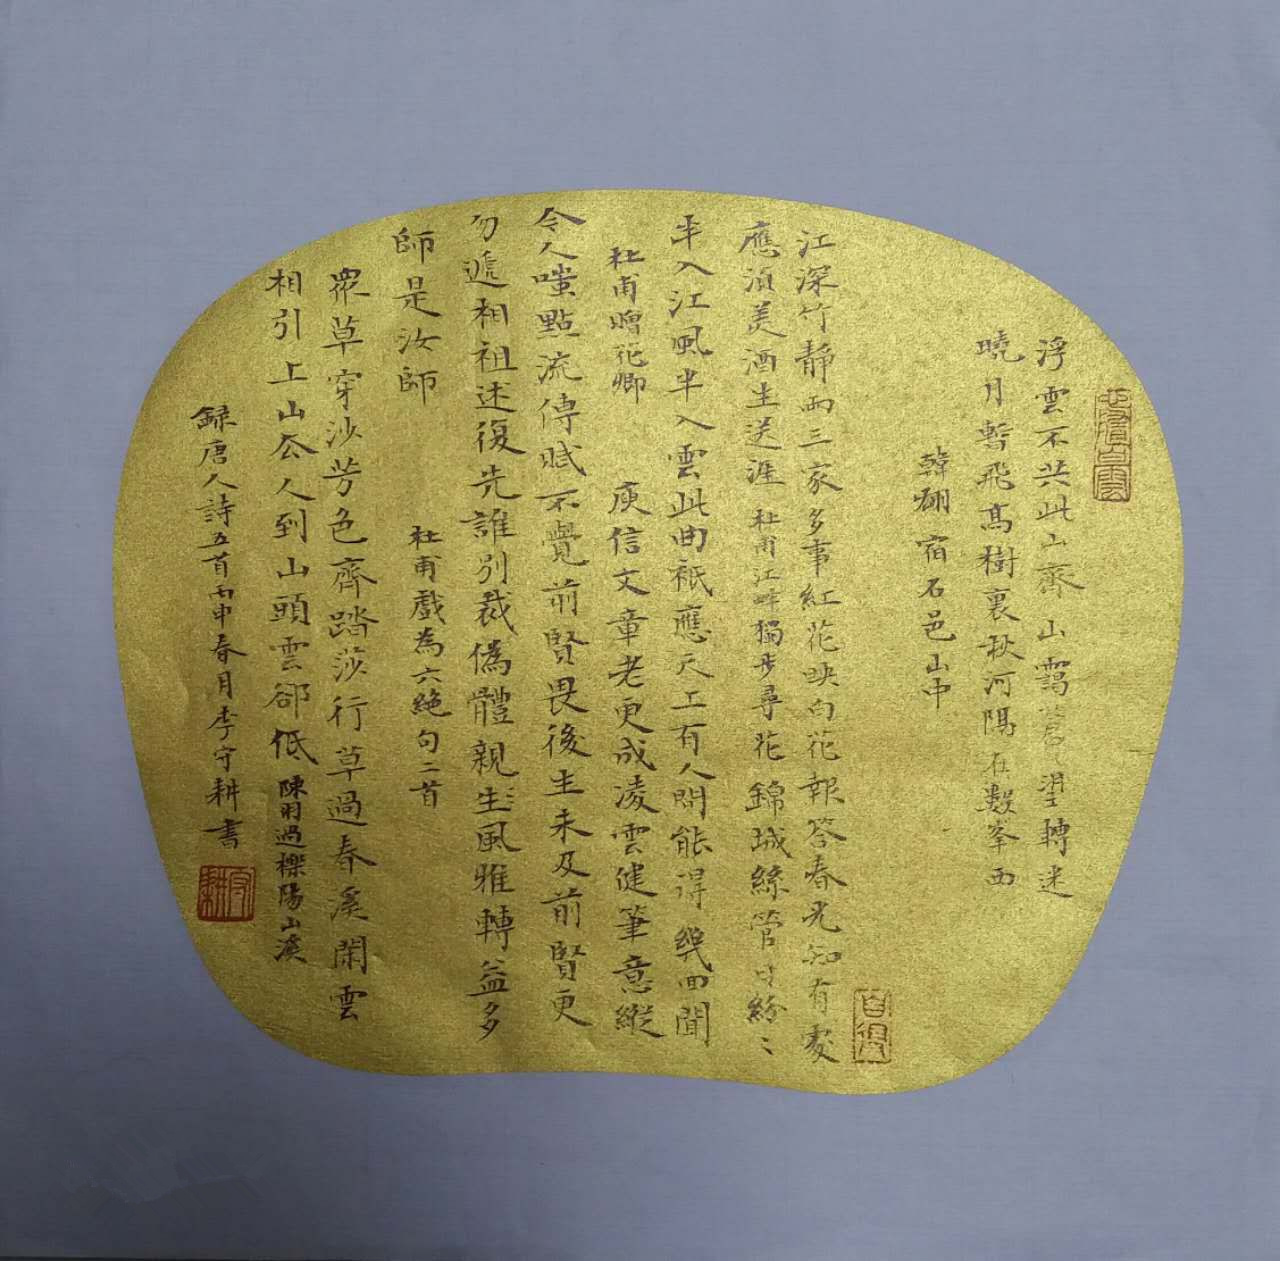 浮雲不共此山齊山靄蒼〻望轉迷
曉月暫飛高樹裏秋河隔在數峯西
韓翃宿石邑山中
江深竹靜兩三家多事紅花映白花報答春光知有處
應須美酒生送涯杜甫江畔獨步尋花錦城絲管日紛〻
半入江風半入雲此曲祇應天上有人間能得幾回聞
杜甫贈花卿庾信文章老更成凌雲健筆意縱
令人嗤點流傳賦不覺前賢畏後生未及前賢更
勿遞相祖述復先誰別裁偽體親生〻風雅轉益多
師是汝師杜甫戲為六絕句二首
眾草穿沙芳色齊踏莎行草過春溪閑雲
相引上山去人到山頭雲卻低陳羽過櫟陽山溪
錄唐人詩五首丙申春月李守耕書
守耕
自得